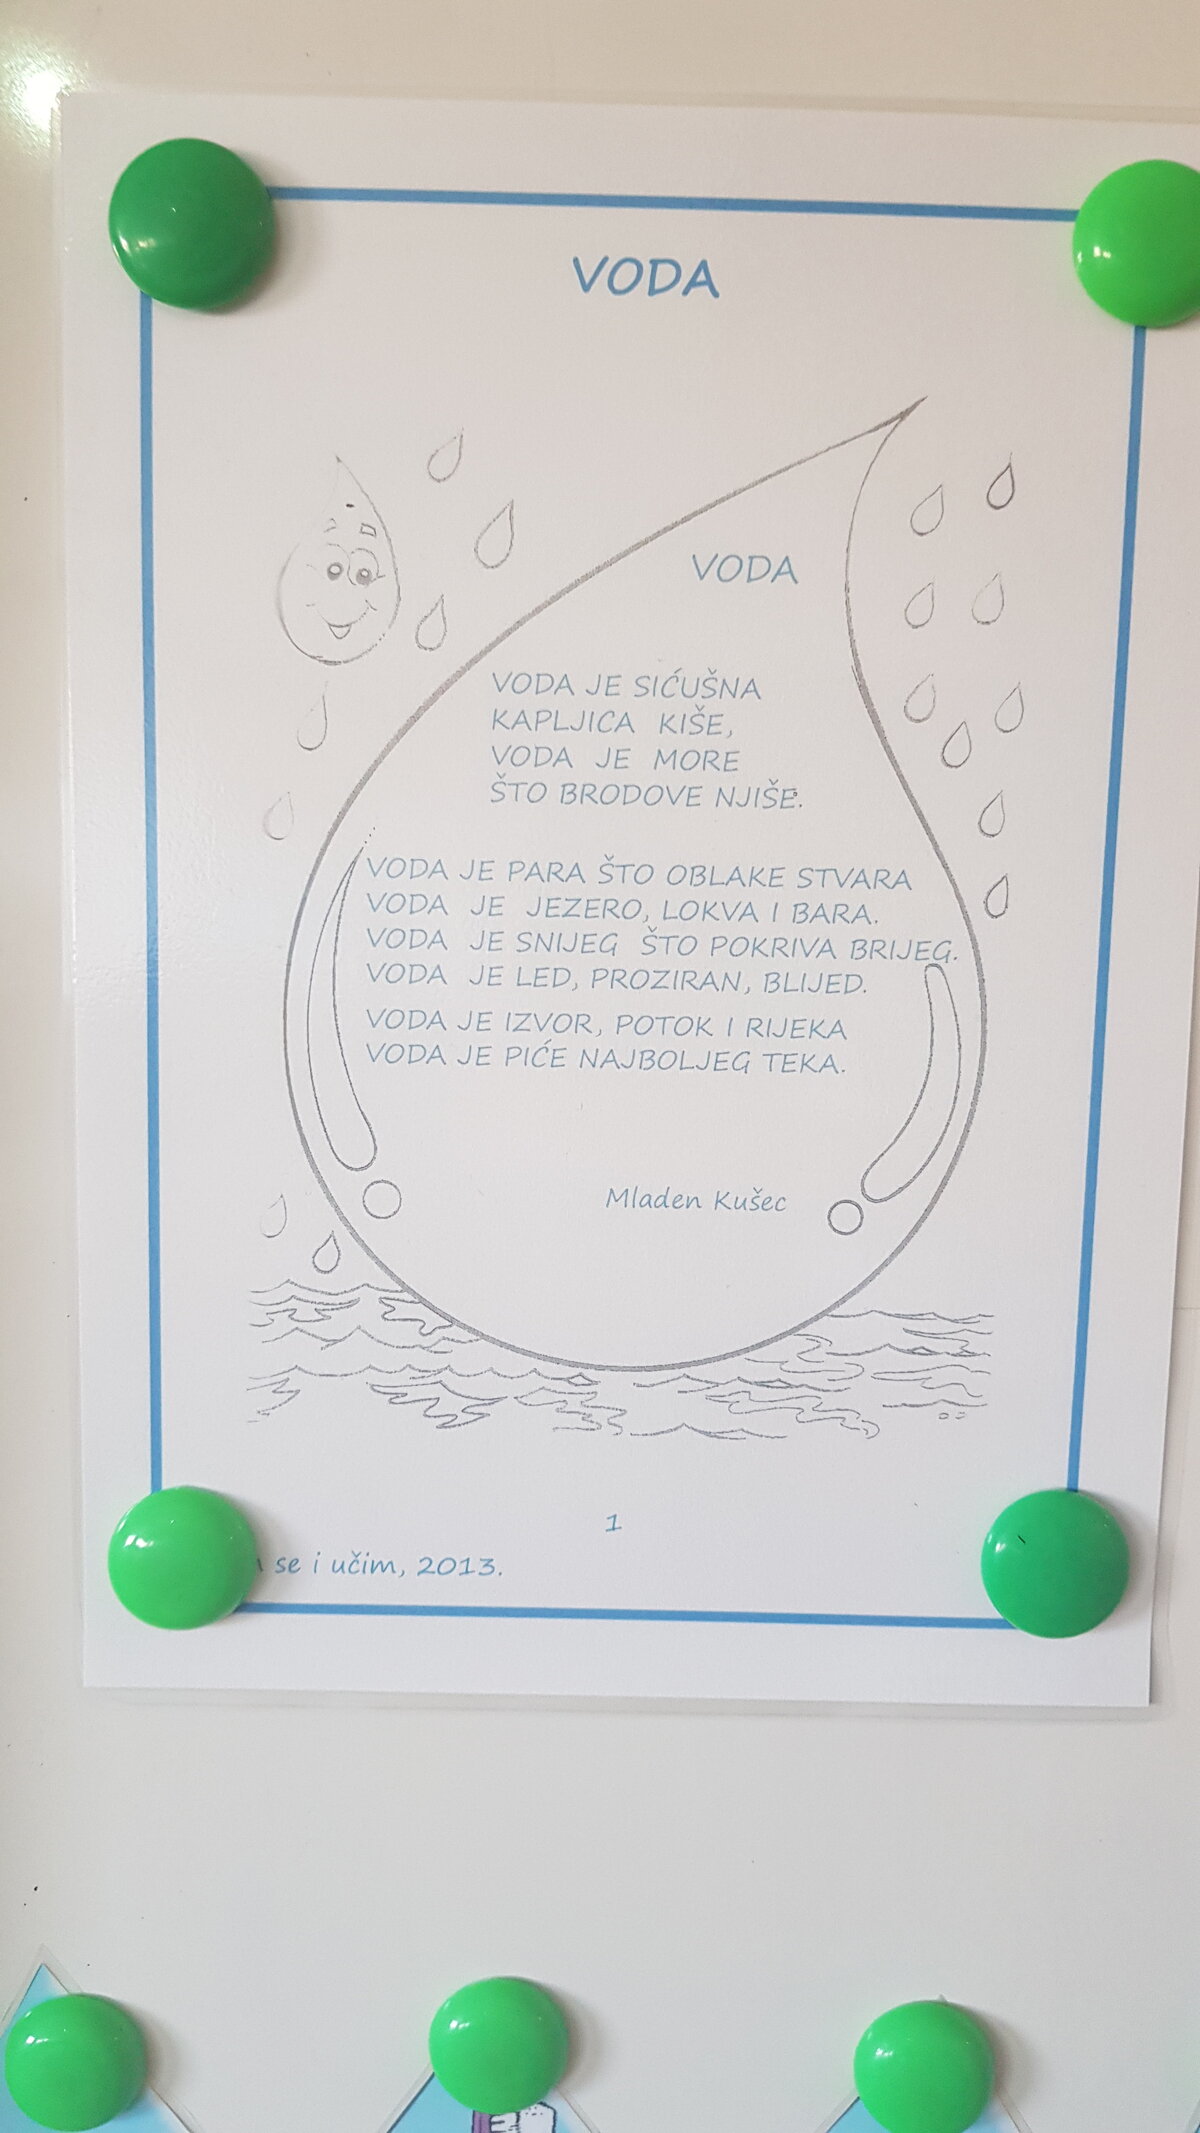 VODA
VODA
VODA JE SIĆUŠNA
KAPLJICA KIŠE,
VODA JE MORE
ŠTO BRODOVE NJIŠE.
VODA JE PARA ŠTO OBLAKE STVARA
VODA JE JEZERO, LOKVA I BARA.
VODA JE SNIJEG ŠTO POKRIVA BRIJEG.
VODA JE LED, PROZIRAN, BLIJED.
VODA JE IZVOR, POTOK I RIJEKA
VODA JE PIĆE NAJBOLJEG TEKA.
Mladen Kušec
1
se i učim, 2013.